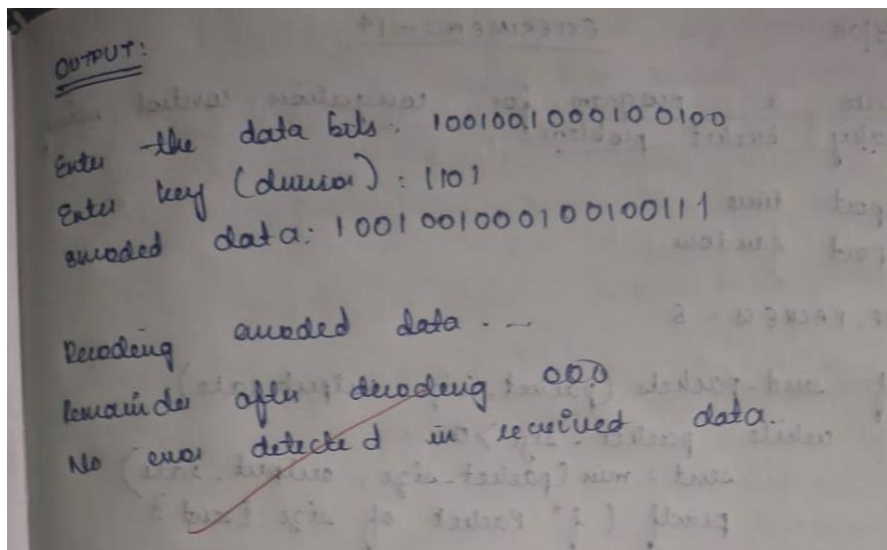 OUTPUT:
Enter the data bits: 1001001000100100
Enter key (divisor): 1101
encoded data: 1001001000100100111
Decoding encoded data...
Remainder after decoding 000
No error detected in received data.